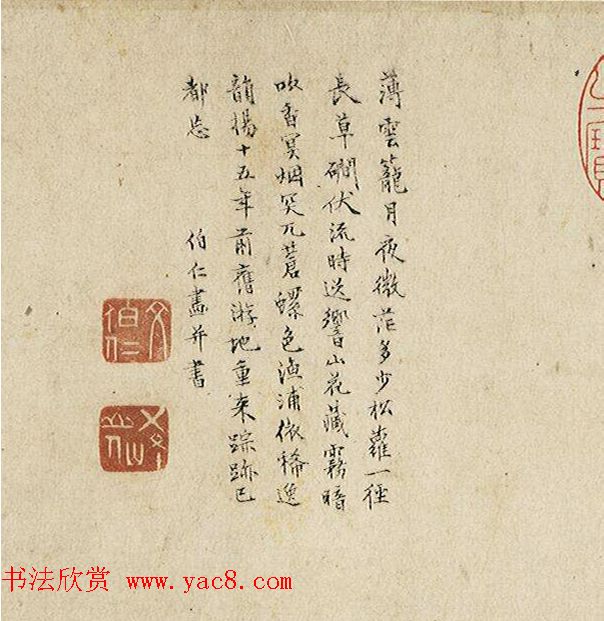 薄雲籠月夜微茫多少松蘿一徑
長草礀伏流時送響山花藏霧暗
吹香冥烟突兀蒼螺色漁浦依稀逸
韻揚十五年前舊游地重来踪跡已
都忘 伯仁畫并書
文伯仁
五峯
书法欣赏 www.yac8.com